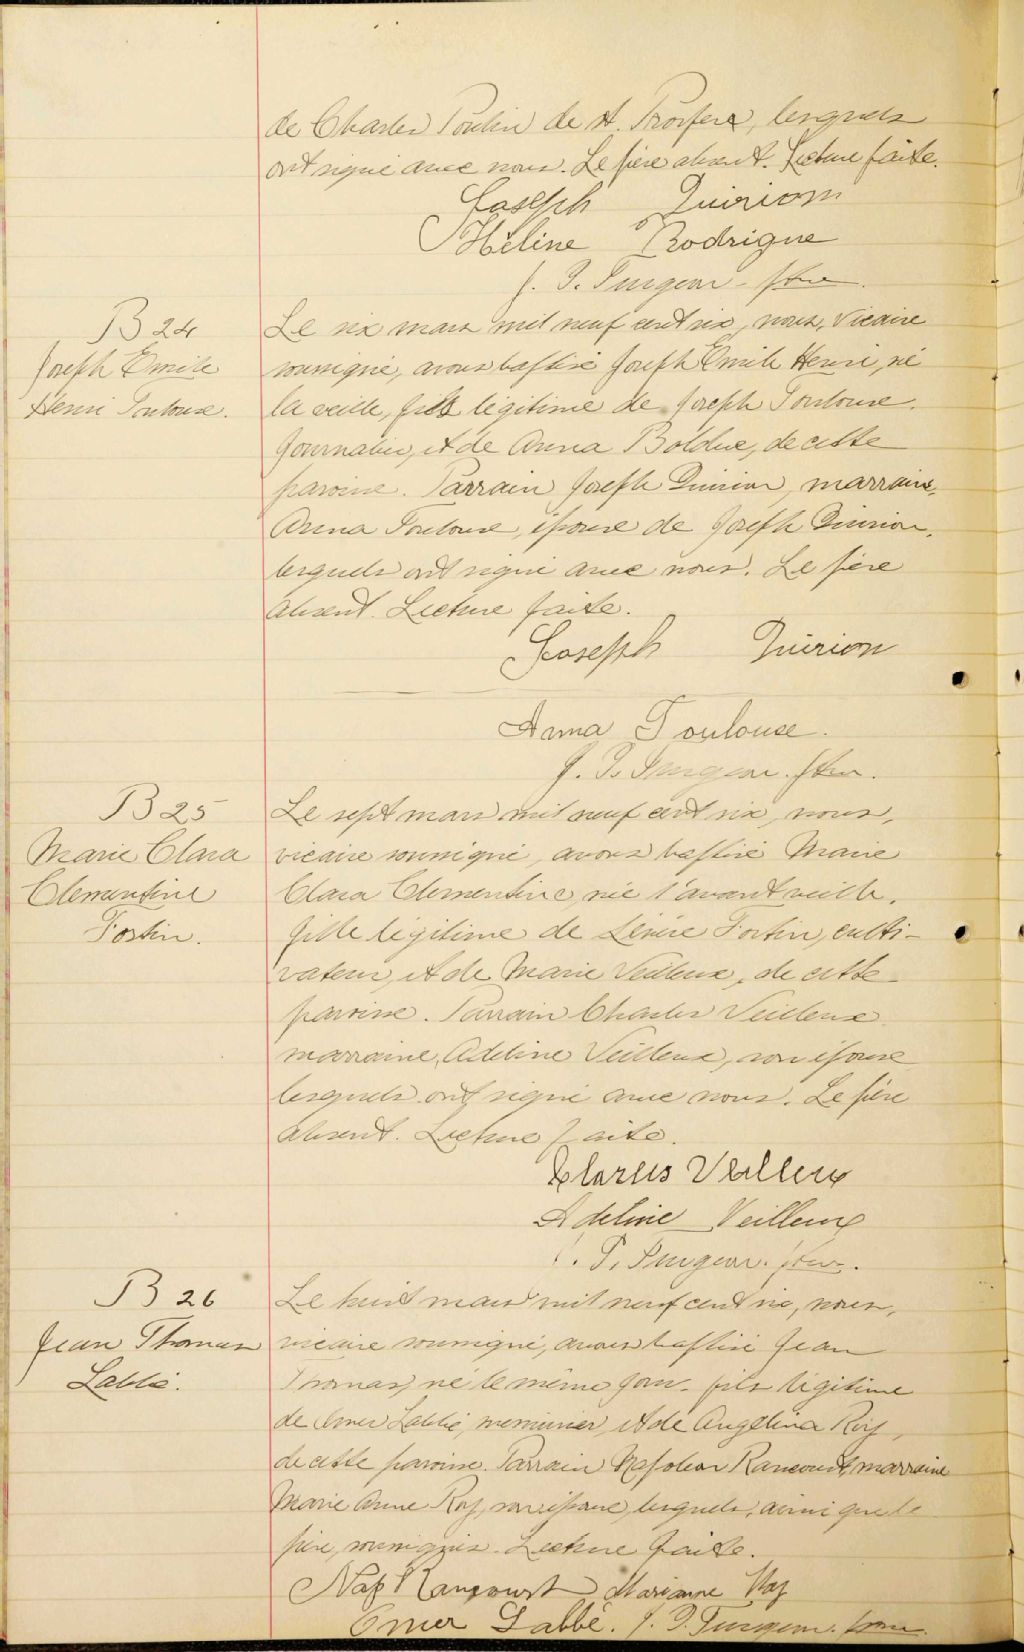 de Charles Poulin de St. Prosper, lesquels
ont signé avec nous. Le père absent. Lecture faite.
Joseph Quirion
Héline Rodrigue
J. P. Turgeon - ptre.
B 24
Joseph Emile
Henri Toulouse.
Le six mars mil neuf cent six, nous, vicaire
soussigné, avons baptisé Joseph Emile Henri, né
la veille, fils légitime de Joseph Toulouse.
journalier, et de Anna Bolduc, de cette
paroisse. Parrain Joseph Quirion, marraine,
Anna Toulouse, épouse de Joseph Quirion,
lesquels ont signé avec nous. Le père
absent. Lecture faite.
Joseph Quirion
Anna Toulouse.
J. P. Turgeon. ptre.
B 25
Marie Clara
Clementine
Fortin.
Le sept mars mil neuf cent six, nous,
vicaire soussigné, avons baptisé Marie
Clara Clementine, née l'avant veille,
fille légitime de Fortin, culti-
vateur, et de Marie Veilleux, de cette
paroisse. Parrain Charles Veilleux
marraine, Adeline Veilleux, son épouse
lesquels ont signé avec nous. Le père
absent. Lecture faite.
Charles Veilleux
Adeline Veilleux
J. P. Turgeon. ptre.
B 26
Jean Thomas
Labbé.
Le huit mars mil neuf cent six, nous,
vicaire soussigné, avons baptisé Jean
Thomas, né le même jour. fils légitime
de Omer Labbé, menuisier, et de Angelina Roy,
de cette paroisse. Parrain Napoleon Rancourt, marraine
Marie Anne Roy, son épouse, lesquels, ainsi que le
père, soussignés. Lecture faite.
Nap Rancourt Marianne Roy
Omer Labbé. J. P. Turgeon. ptre.